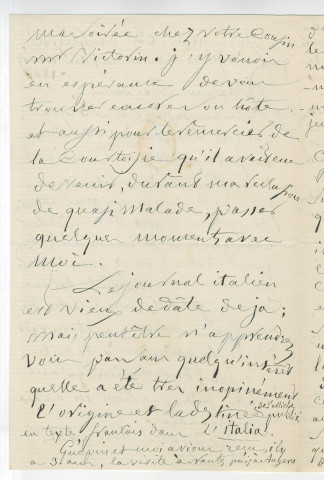 ma soirée chez votre Cousin
mr Victorin. j'y venois
en espérance de vous
trouver encore son hote
et aussi pour le remercier de
la Courtoisie qu'il a eu
de venir, durant ma reclusion
de quasi Malade, passer
quelques moments avec
Moi.
Le journal italien
est vieux de date deja;
Mais peutêtre n'apprendrez
vous pas sans quelqu'interet
quelle a été très inopinément
L'origine et la destinée de l'article publié
en texte français dans L'italia.
Guépin et moi avions recu, il y
a 31 ans, la visite à Nantz